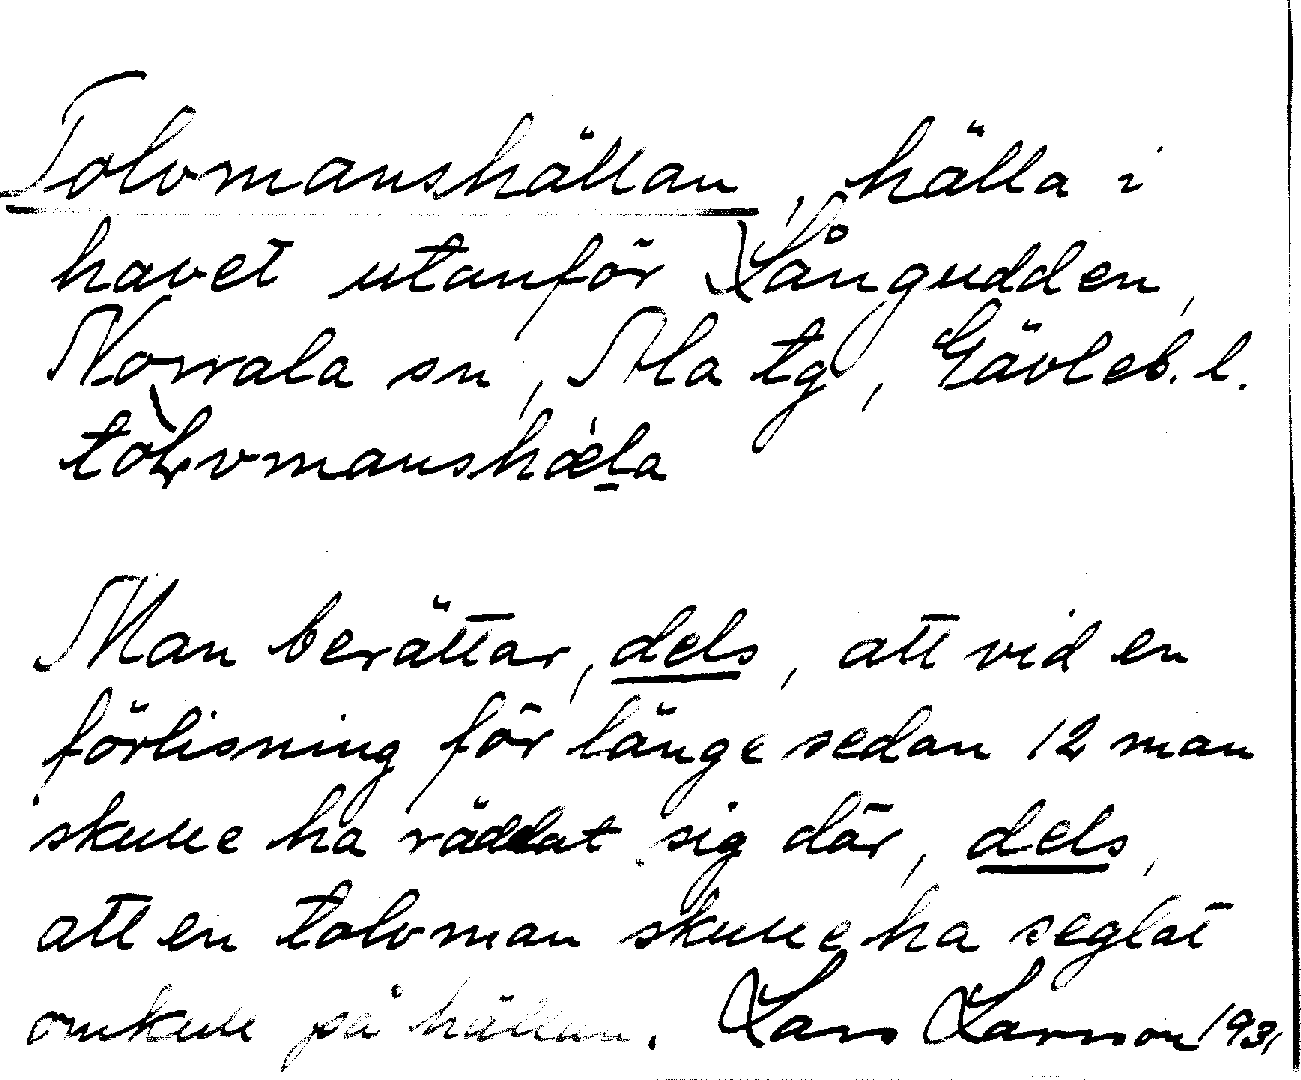 Tolvmanshällan, hälla i
havet utanför Långudden,
Norrala sn, Ala tg, Gävleb. l.
Man berättar, dels, att vid en
förlisning för länge sedan 12 man
skulle ha räddat sig där, dels,
att en tolvman skulle ha seglat
omkull på hällan. Lars Larsson 1931